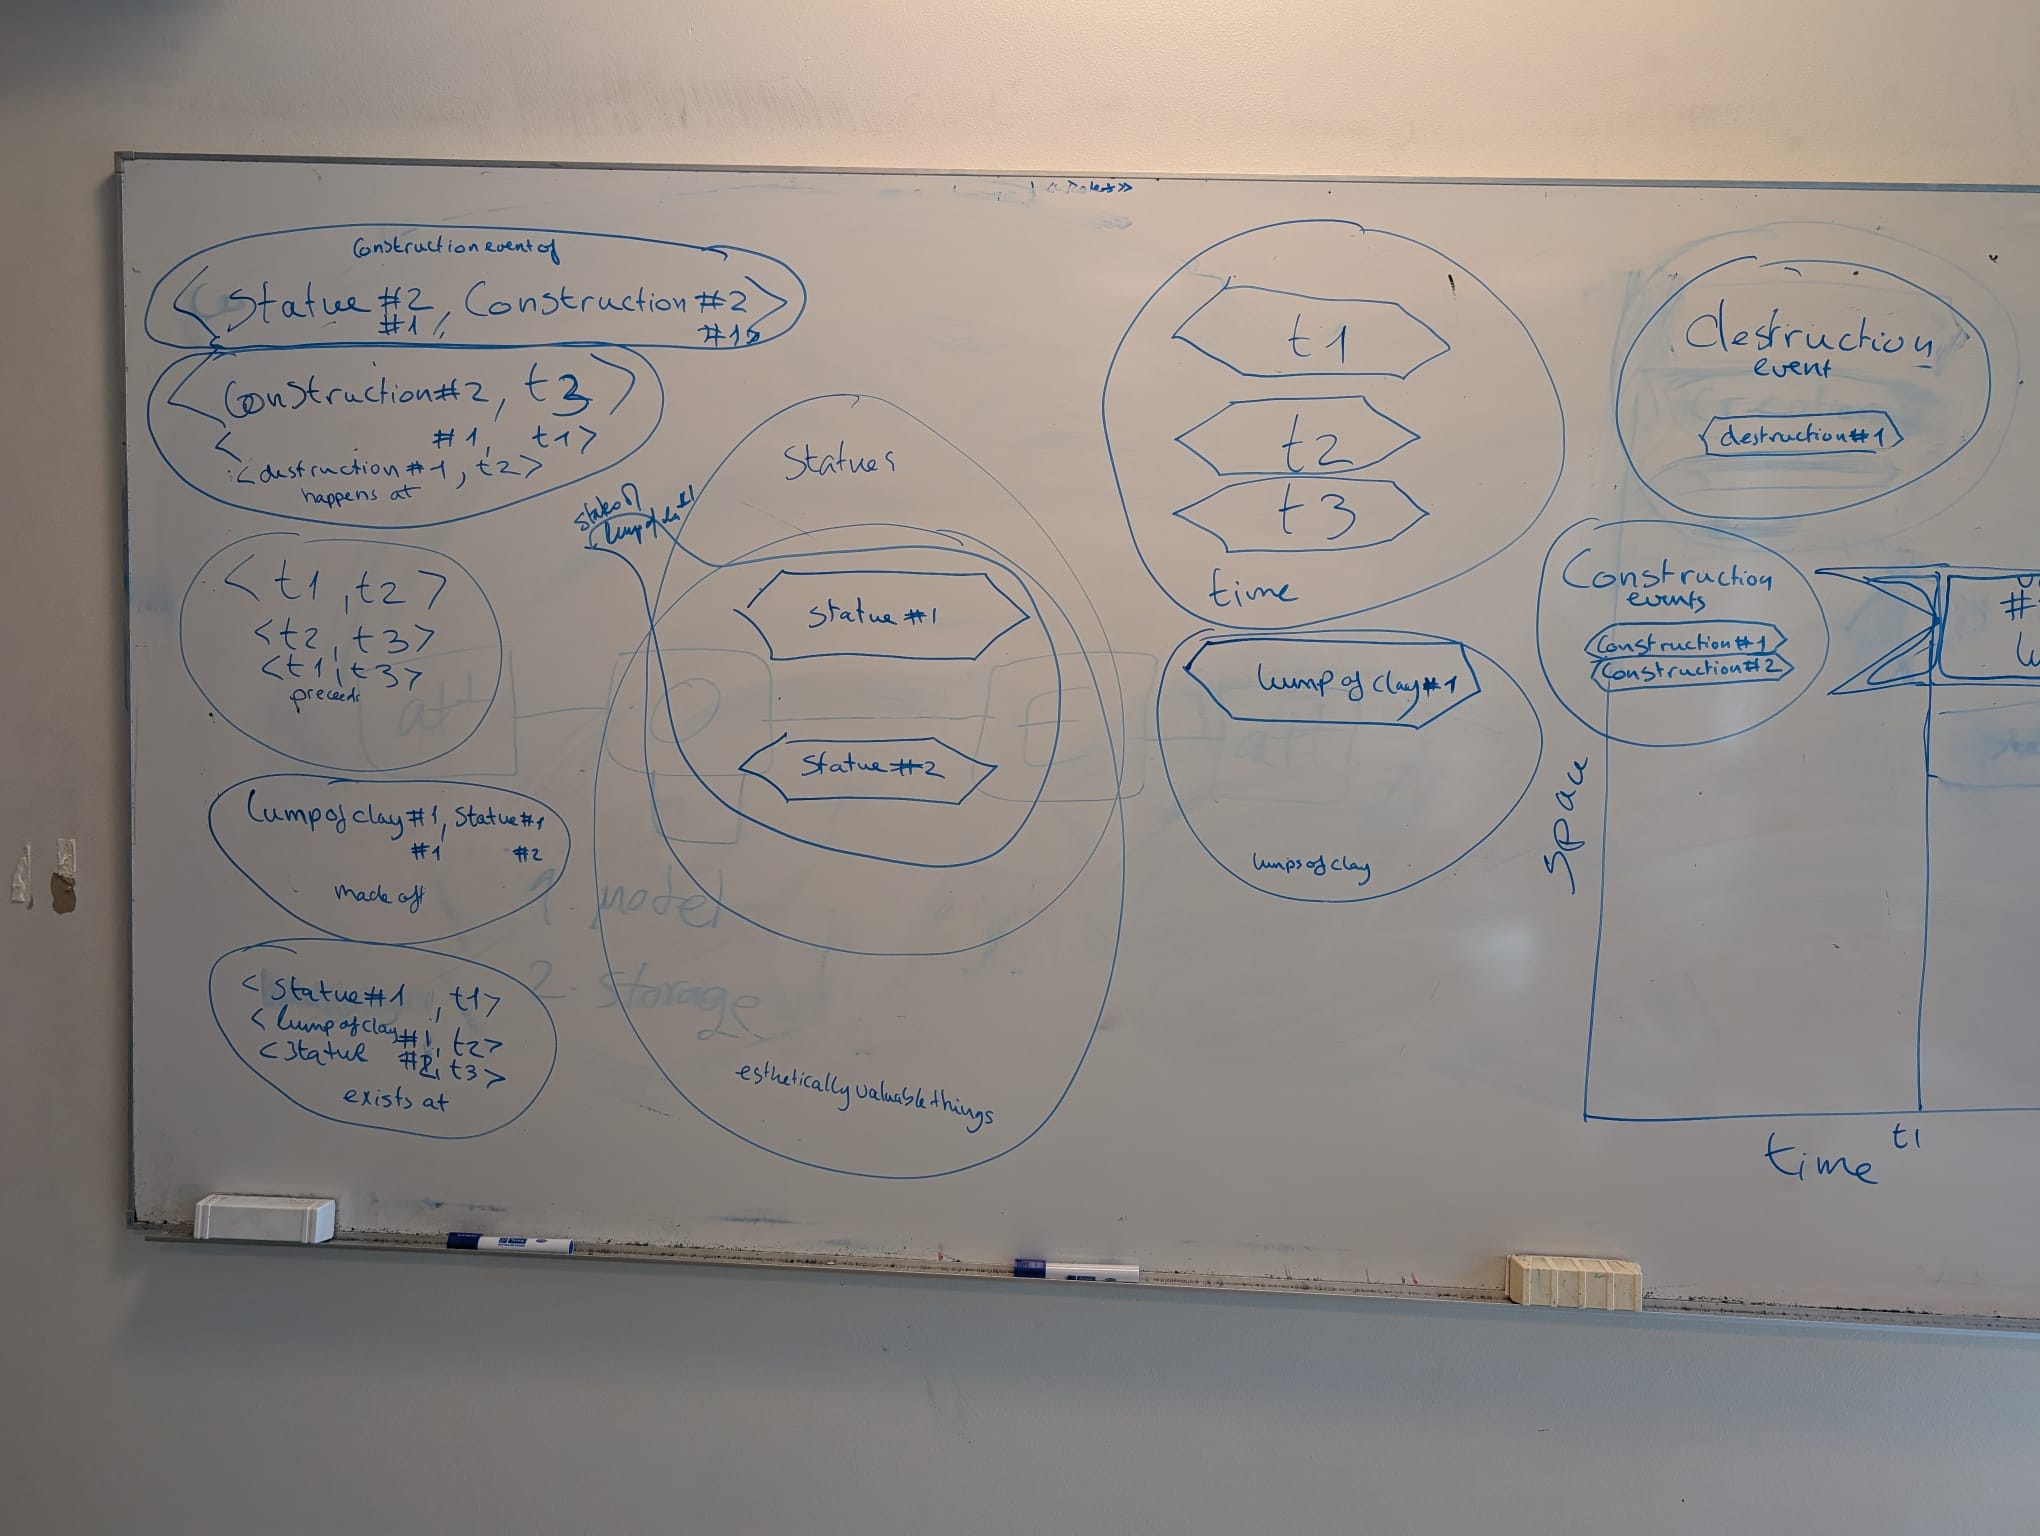 « Roles »
Construction event of
< Statue #2, Construction #2 >
#1, #1>
< Construction #2, t3 >
< #1, t1 >
< destruction #1, t2 >
happens at
< t1, t2 >
< t2, t3 >
< t1, t3 >
preceeds
Lump of clay #1, Statue #1
#1 #2
made off
< Statue #1, t1 >
< lump of clay #1, t2 >
< Statue #2, t3 >
exists at
Statues
states of
lump of
Statue #1
Statue #2
esthetically valuable things
1. model
2. storage
att
E
att
t1
t2
t3
time
lump of clay #1
lumps of clay
destruction
event
destruction #1
Construction
events
Construction #1
Construction #2
space
time
t1